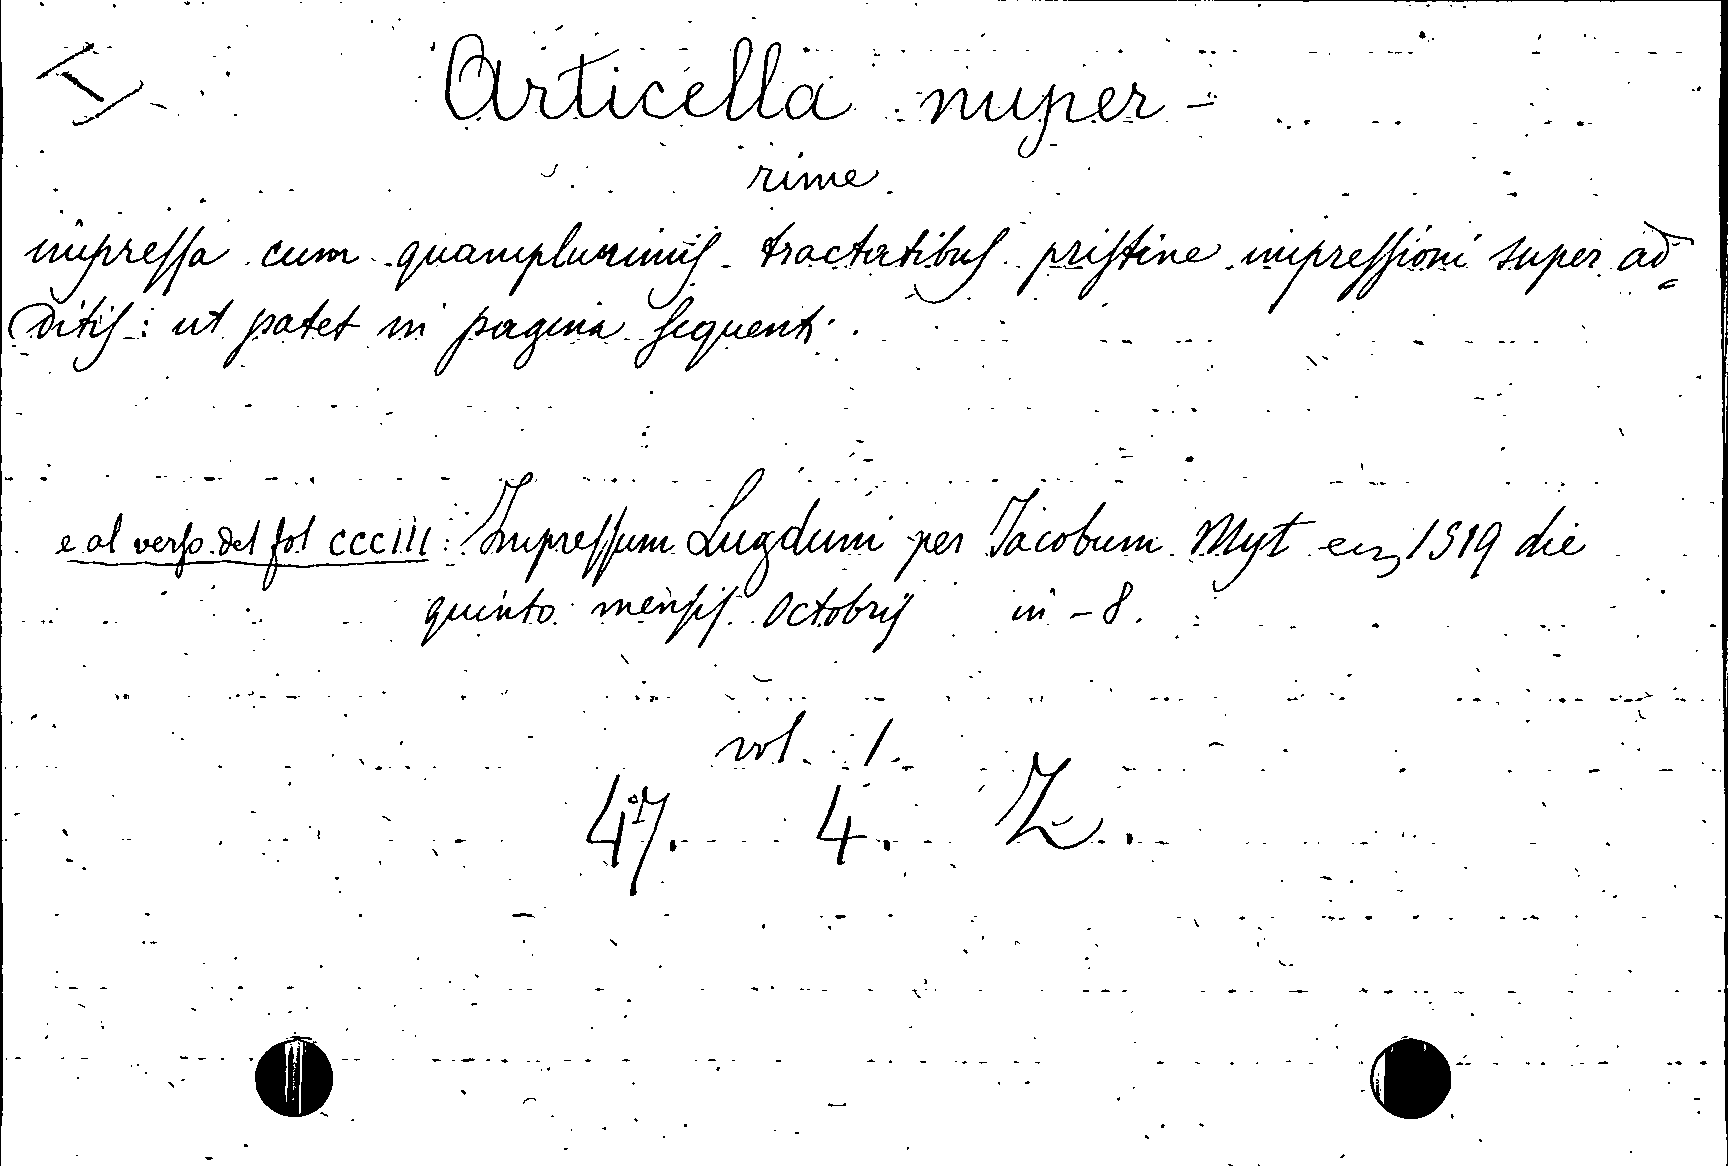 Articella nuper-
rime
impressa cum quamplurimis tractatibus pristine impressioni super ad=
ditis: ut patet in pagina sequenti.
e al verso del fol CCCIII: Impressum Lugduni per Jacobum Myt 1519 die
quinto mensis Octobris in-8.
vol. 1.
47. 4. Z.